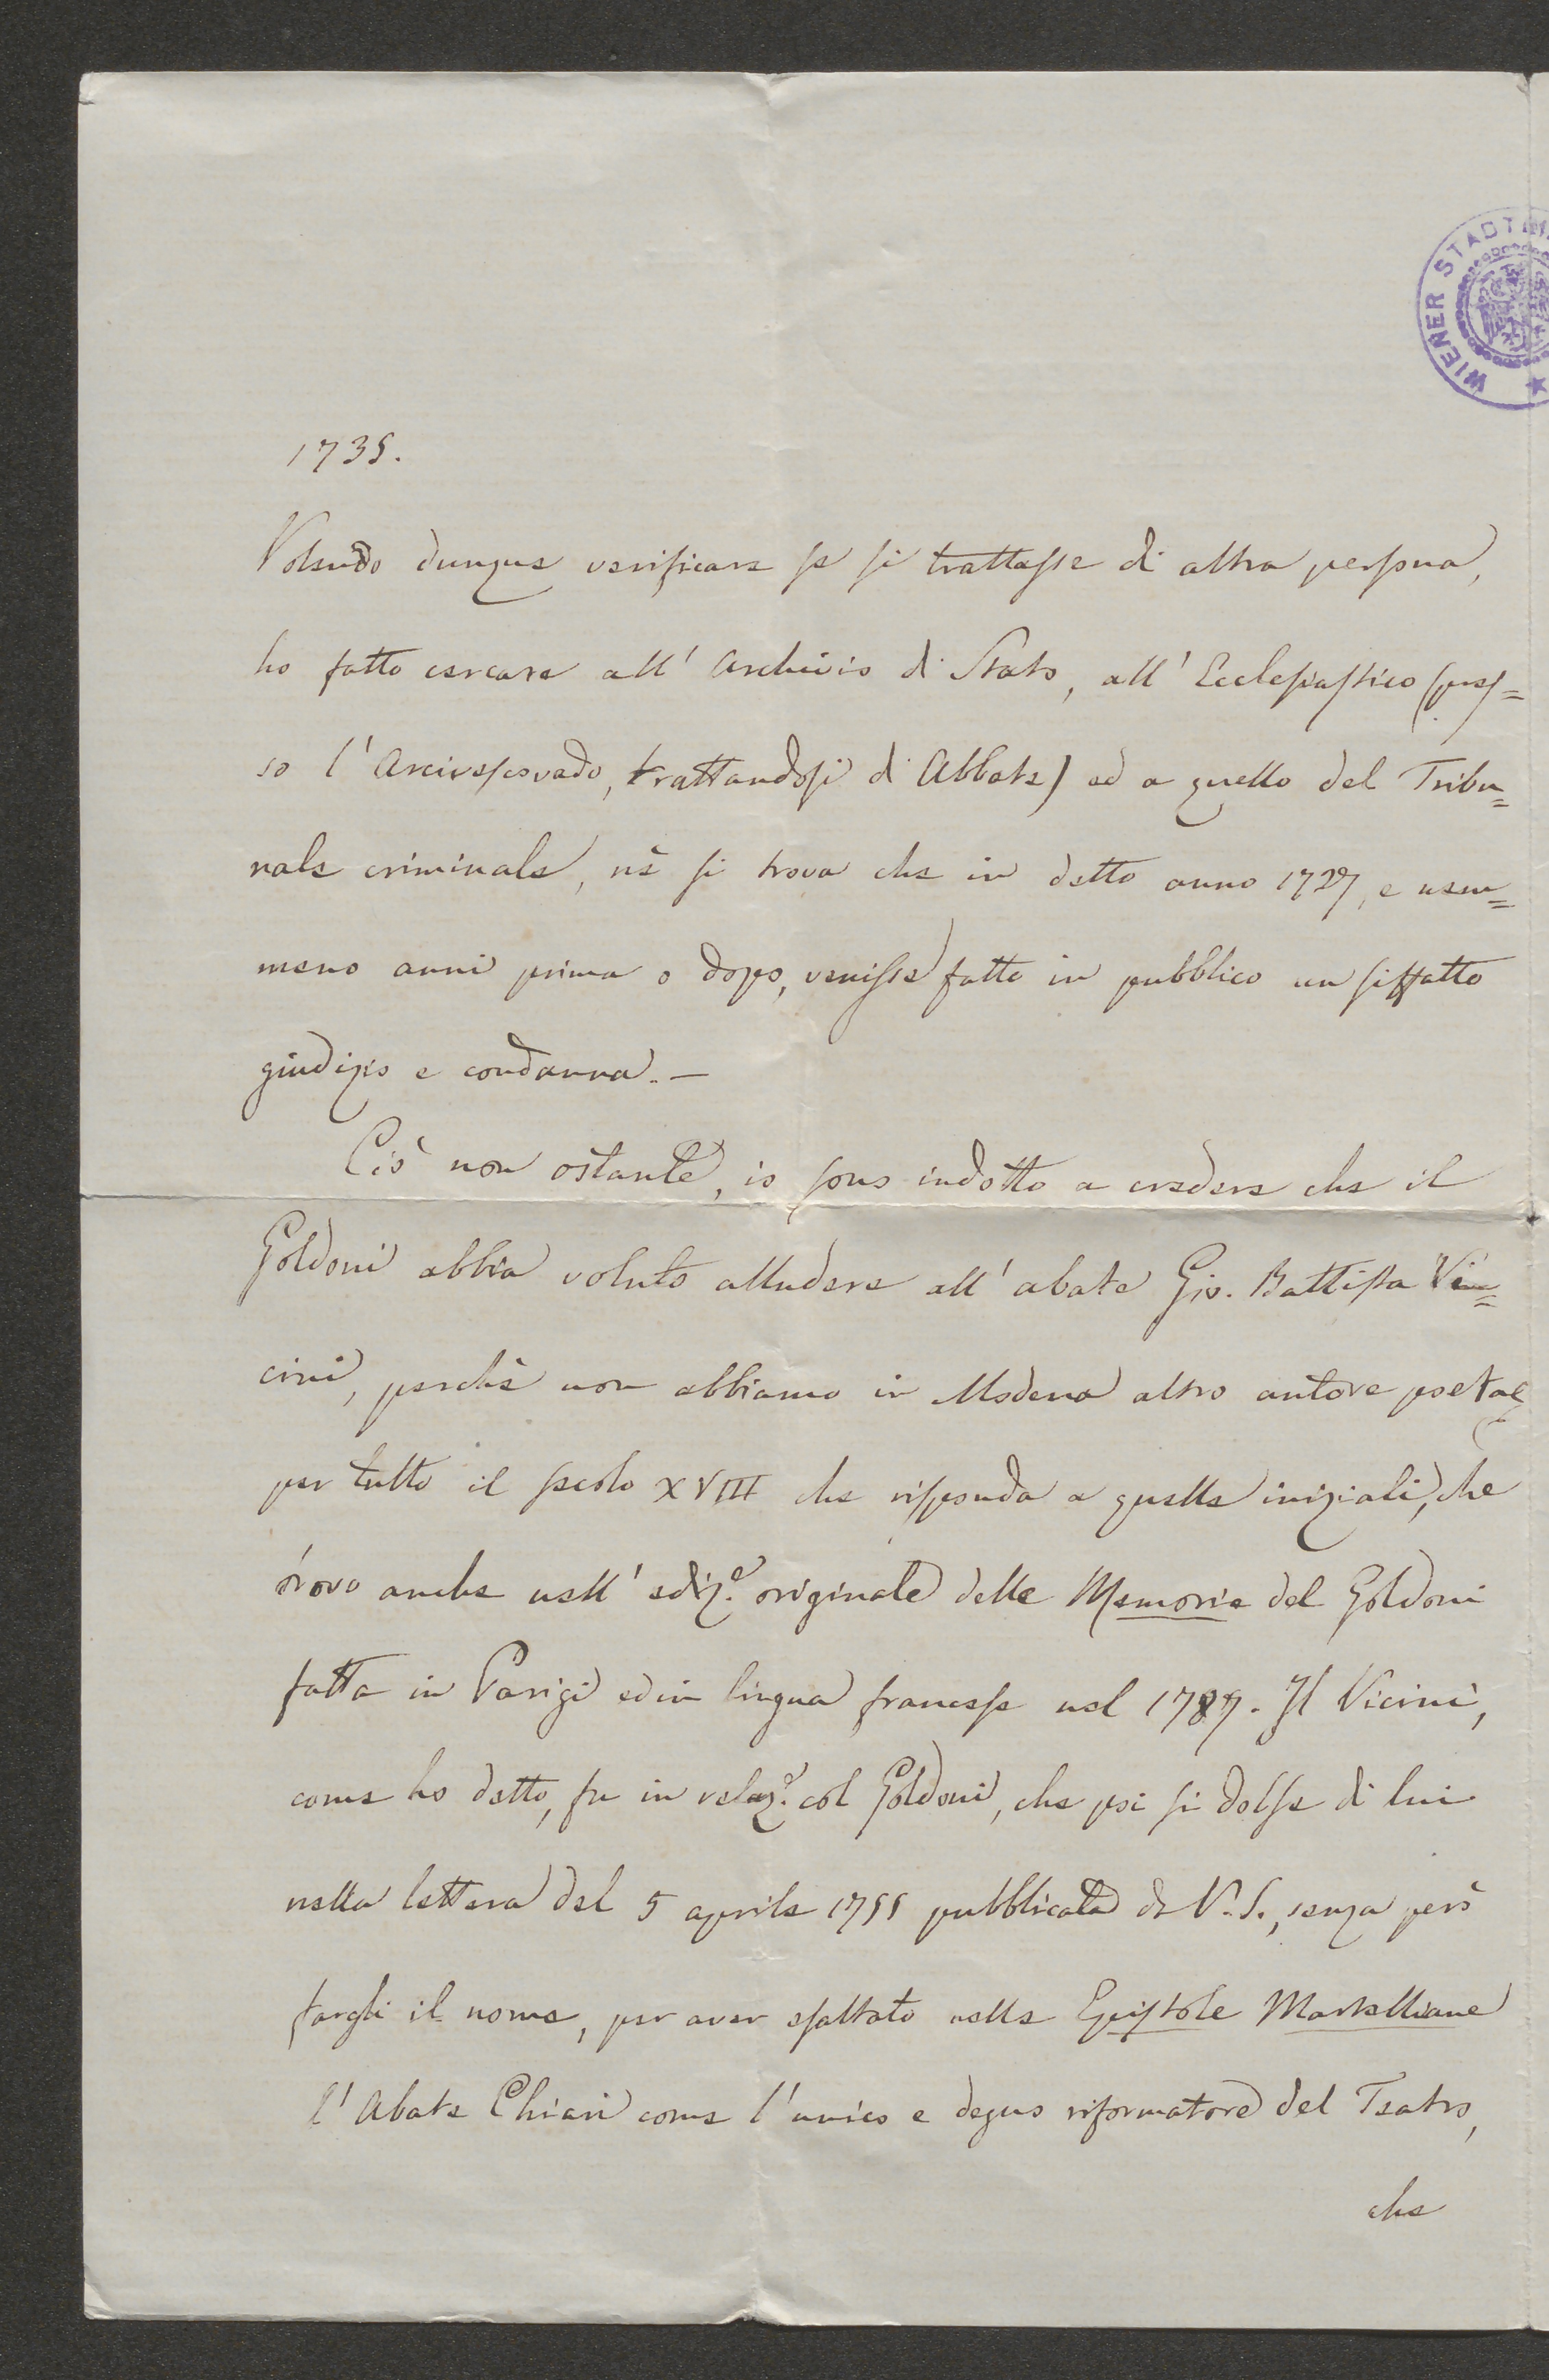 WIENER STADT
1735.
Volendo dunque verificare se si trattasse di altra persona,
ho fatto cercare all' Archivio di Stato, all' Ecclesiastico (pres=
so l' Arcivescovado, trattandosi di Abbate) ed a quello del Tribu=
nale criminale, nè si trova che in detto anno 1727, e nem=
meno anni prima o dopo, venisse fatto in pubblico un siffatto
giudizio e condanna. —
Ciò non ostante, io sono indotto a credere che il
Goldoni abbia voluto alludere all' abate Gio. Battista Vi=
cini, perchè non abbiamo in Modena altro autore poeta
per tutto il secolo XVIII che risponda a quelle iniziali, che
trovo anche nell' ediz.e originale delle Memorie del Goldoni
fatta in Parigi ed in lingua francese nel 1787. Il Vicini,
come ho detto, fu in relaz.e col Goldoni, che poi si dolse di lui
nella lettera del 5 aprile 1755 pubblicata da V. S., senza però
fargli il nome, per aver esaltato nelle Epistole Martelliane
l' Abate Chiari come l' unico e degno riformatore del Teatro,
che